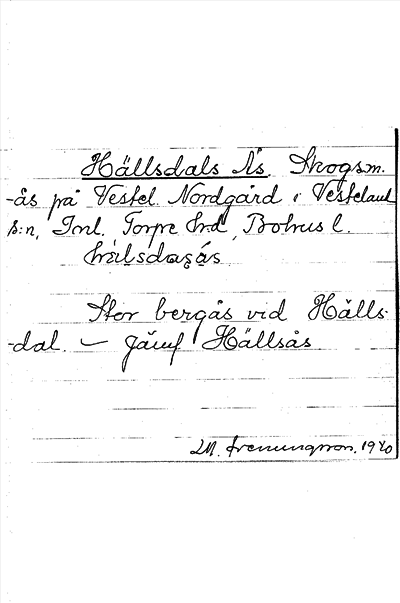 Hällsdals Ås. Skogsm.
-ås på Vestel. Nordgård i Vesteland
s:n, Inl. Torpe hrd, Bohus l.
hä̀lsdaɷsås

Stor bergås vid Hälls-
-dal. – Jämf Hällsås

1940